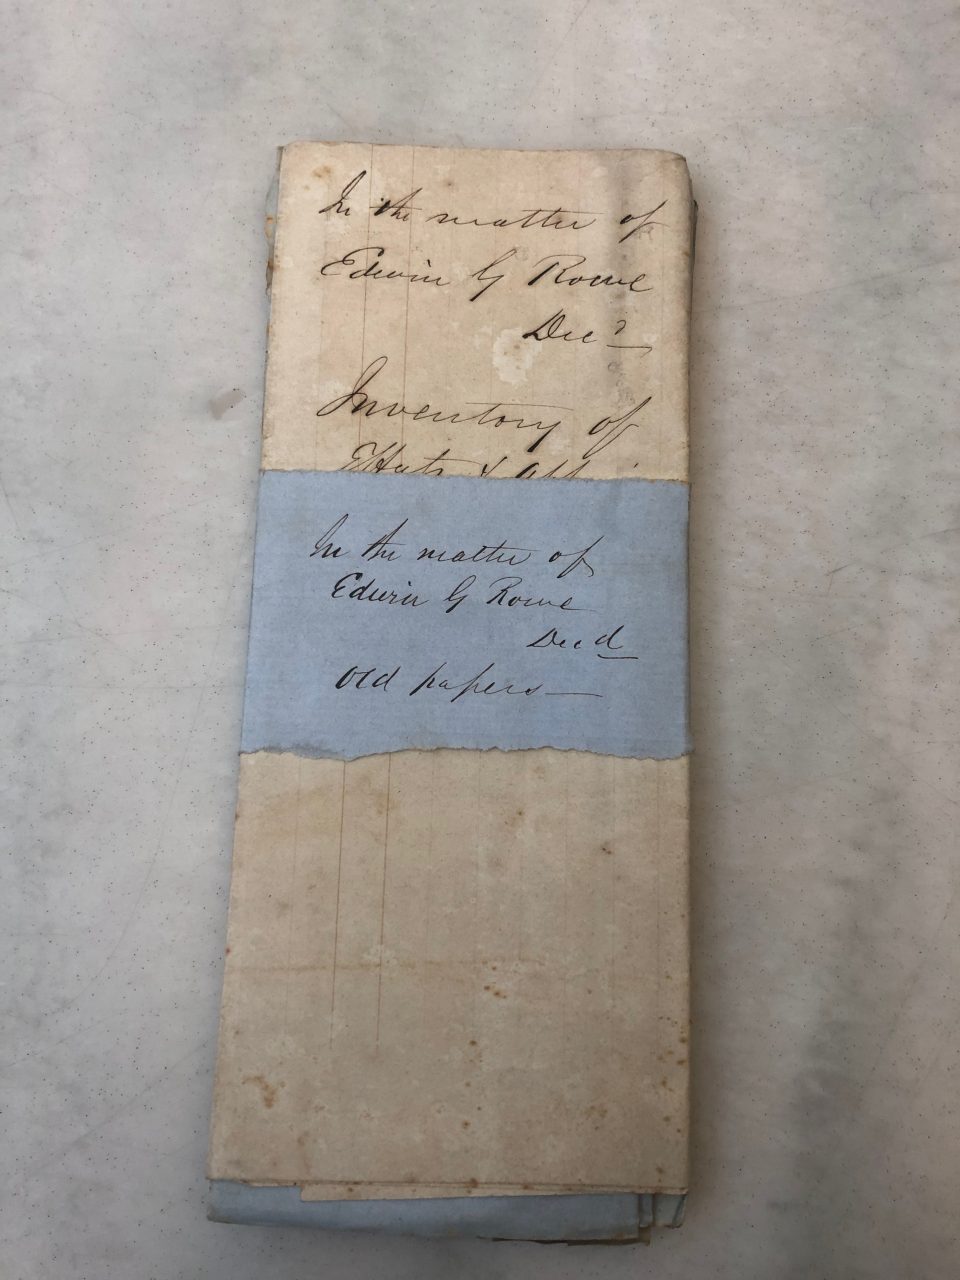 In the matter of
Edwin G Rowe
Decd
Inventory of
Effects &
In the matter of
Edwin G Rowe
Decd
Old papers